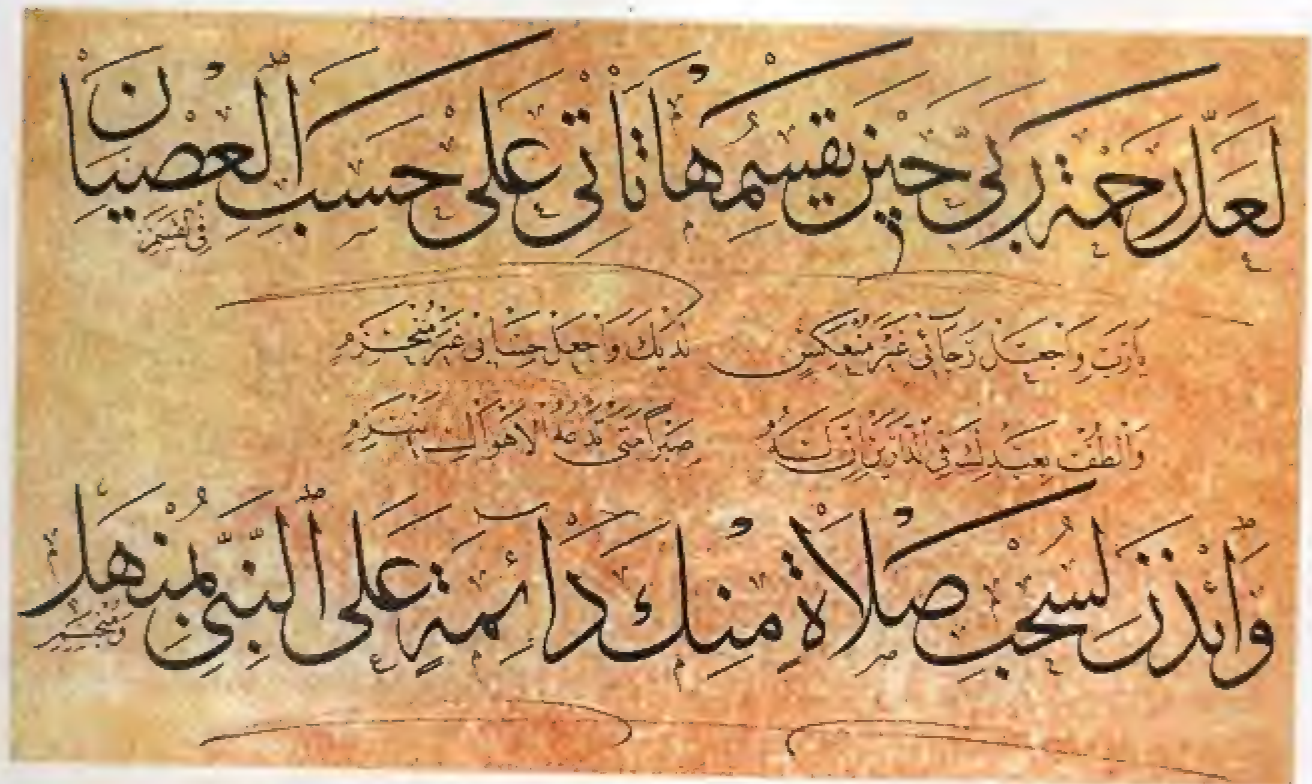 لَعَلَّ رَحْمَةَ رَبِّي حِينَ يَقْسِمُهَا تَأْتِي عَلَى حَسَبِ الْعِصْيَانِ
فِي الْقِسَمِ
يَارَبِّ وَاجْعَلْ رَجَائِي غَيْرَ مُنْعَكِسٍ لَدَيْكَ وَاجْعَلْ حِسَابِي غَيْرَ مُنْخَرِمِ
وَالْطُفْ بِعَبْدِكَ فِي الدَّارَيْنِ إِنَّ لَهُ صَبْرًا مَتَى تَدْعُهُ الْأَهْوَالُ يَنْهَزِمِ
وَائْذَنْ لِسُحْبِ صَلَاةٍ مِنْكَ دَائِمَةٍ عَلَى النَّبِيِّ بِمُنْهَلٍّ
وَمُنْسَجِمِ